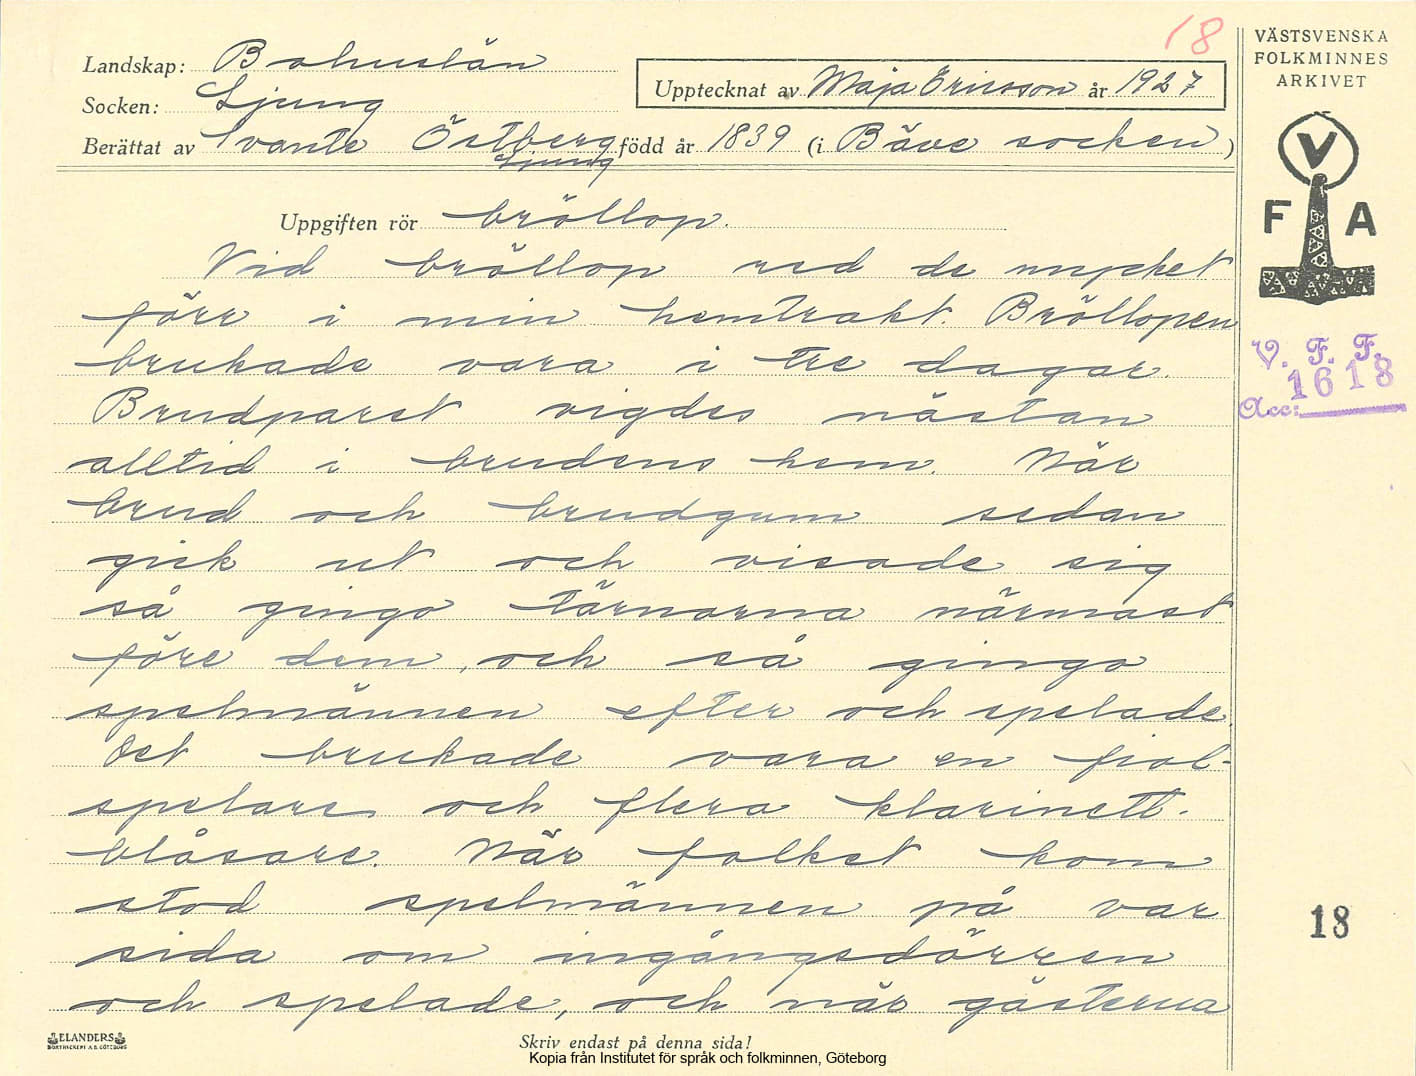 18
Landskap: Bohuslän
Socken: Ljung
Upptecknat av Maja Ericsson år 1927
Berättat av Svante Östberg född år 1839 (i Bäve socken)
Ljung
VÄSTSVENSKA
FOLKMINNES
ARKIVET
V
F A
Uppgiften rör bröllop.
Vid bröllop red de mycket
förr i min hemtrakt. Bröllopen
brukade vara i tre dagar.
Brudparet vigdes nästan
alltid i brudens hem. När
brud och brudgum sedan
gick ut och visade sig
så gingo tärnorna närmast
före dem, och så gingo
spelmännen efter och spelade.
Det brukade vara en fiol-
spelare och flera klarinett-
blåsare. När folket kom
stod spelmännen på var
sida om ingångsdörren
och spelade, och när gästerna
V. F. F.
Acc: 1618
18
ELANDERS
BOKTRYCKERI A.B. GÖTEBORG
Skriv endast på denna sida!
Kopia från Institutet för språk och folkminnen, Göteborg